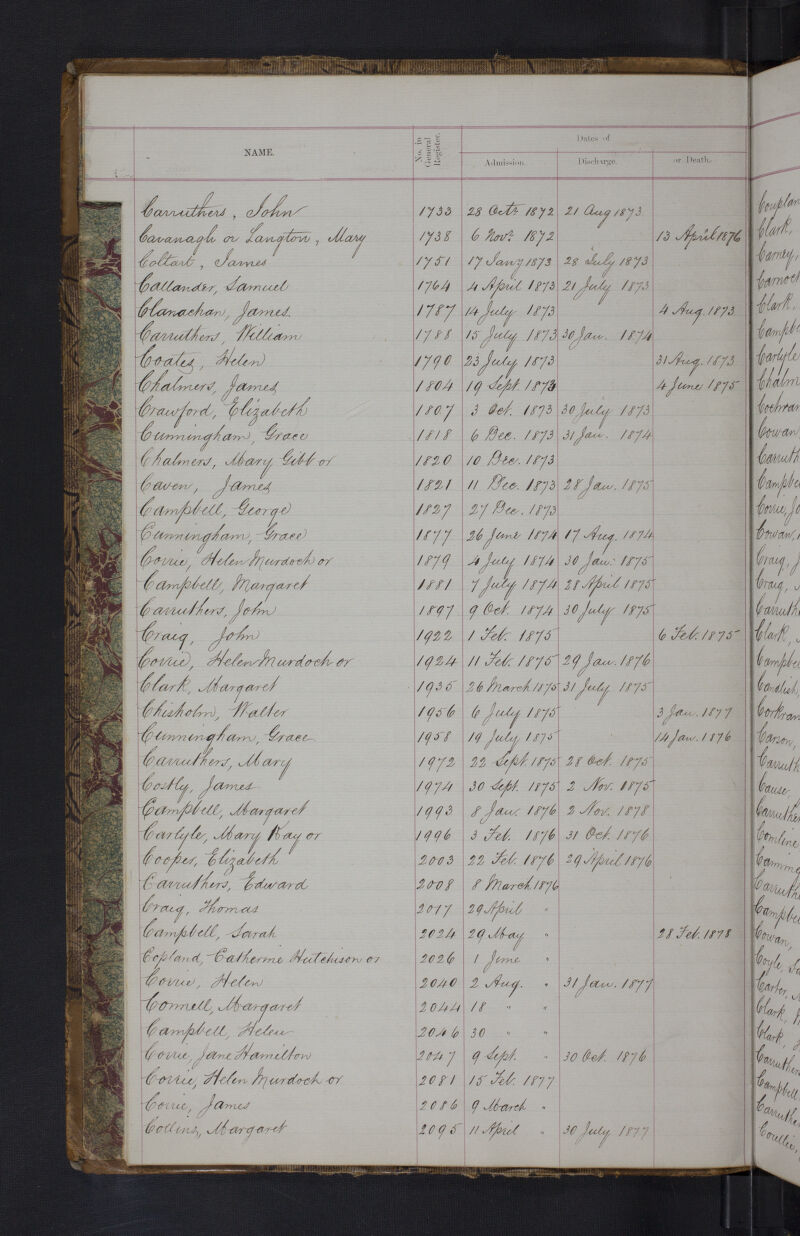 NAME.
No. in General Register.
Dates of
Admission.
Discharge.
or Death.
Carruthers, John 1733 28 Octr 1872 21 Aug 1873
Cavanagh or Langton, Mary 1738 6 Novr 1872 13 April 1876
Coltart, James 1751 17 Jany 1873 28 July 1873
Callander, Samuel 1764 4 April 1873 21 July 1873
Clanachan, James 1787 14 July 1873 4 Aug. 1873
Carruthers, William 1788 15 July 1873 30 Jan. 1874
Coates, Helen 1790 23 July 1873 31 Aug. 1873
Chalmers, James 1804 19 Sept. 1873 4 June 1875
Crawford, Elizabeth 1807 3 Oct. 1873 30 July 1873
Cunningham, Grace 1818 6 Dec. 1873 31 Jan. 1874
Chalmers, Mary Gibb or 1820 10 Dec. 1873
Caven, James 1821 11 Dec. 1873 28 Jan. 1875
Campbell, George 1827 27 Dec. 1873
Cunningham, Grace 1877 26 June 1874 17 Aug. 1874
Corrie, Helen Murdoch or 1879 4 July 1874 30 Jan: 1875
Campbell, Margaret 1881 7 July 1874 28 April 1875
Carruthers, John 1897 9 Oct. 1874 30 July 1875
Craig, John 1922 1 Feb. 1875 6 Feb. 1875
Corrie, Helen Murdoch or 1924 11 Feb. 1875 29 Jan. 1876
Clark, Margaret 1935 26 March 1875 31 July 1875
Chisholm, Walter 1956 6 July 1875 3 Jan. 1877
Cunningham, Grace 1958 19 July 1875 14 Jan. 1876
Carruthers, Mary 1972 22 Sept. 1875 28 Oct. 1875
Costly, James 1974 30 Sept. 1875 2 Nov. 1875
Campbell, Margaret 1993 8 Jan. 1876 2 Nov. 1878
Carlyle, Mary Kay or 1996 3 Feb. 1876 31 Oct. 1876
Cooper, Elizabeth 2003 22 Feb. 1876 29 April 1876
Carruthers, Edward 2008 8 March 1876
Craig, Thomas 2017 29 April "
Campbell, Sarah 2024 29 May " 28 Feb. 1878
Copland, Catherine Hutchison or 2026 1 June "
Corrie, Helen 2040 2 Aug. " 31 Jan. 1877
Connell, Margaret 2044 18 " "
Campbell, Helen 2046 30 " "
Corrie, Jane Hamilton 2047 9 Sept. " 30 Oct. 1876
Corrie, Helen Murdoch or 2081 15 Feb. 1877
Corrie, James 2086 9 March "
Collins, Margaret 2095 11 April " 30 July 1877
Clark,
Carney,
Clark.
Carlyle
Cowan
Cowan,
Craig,
Craig,
Clark,
Carson,
Cause,
Cowan,
Coyle,
Carter,
Clark,
Clark,
Campbell